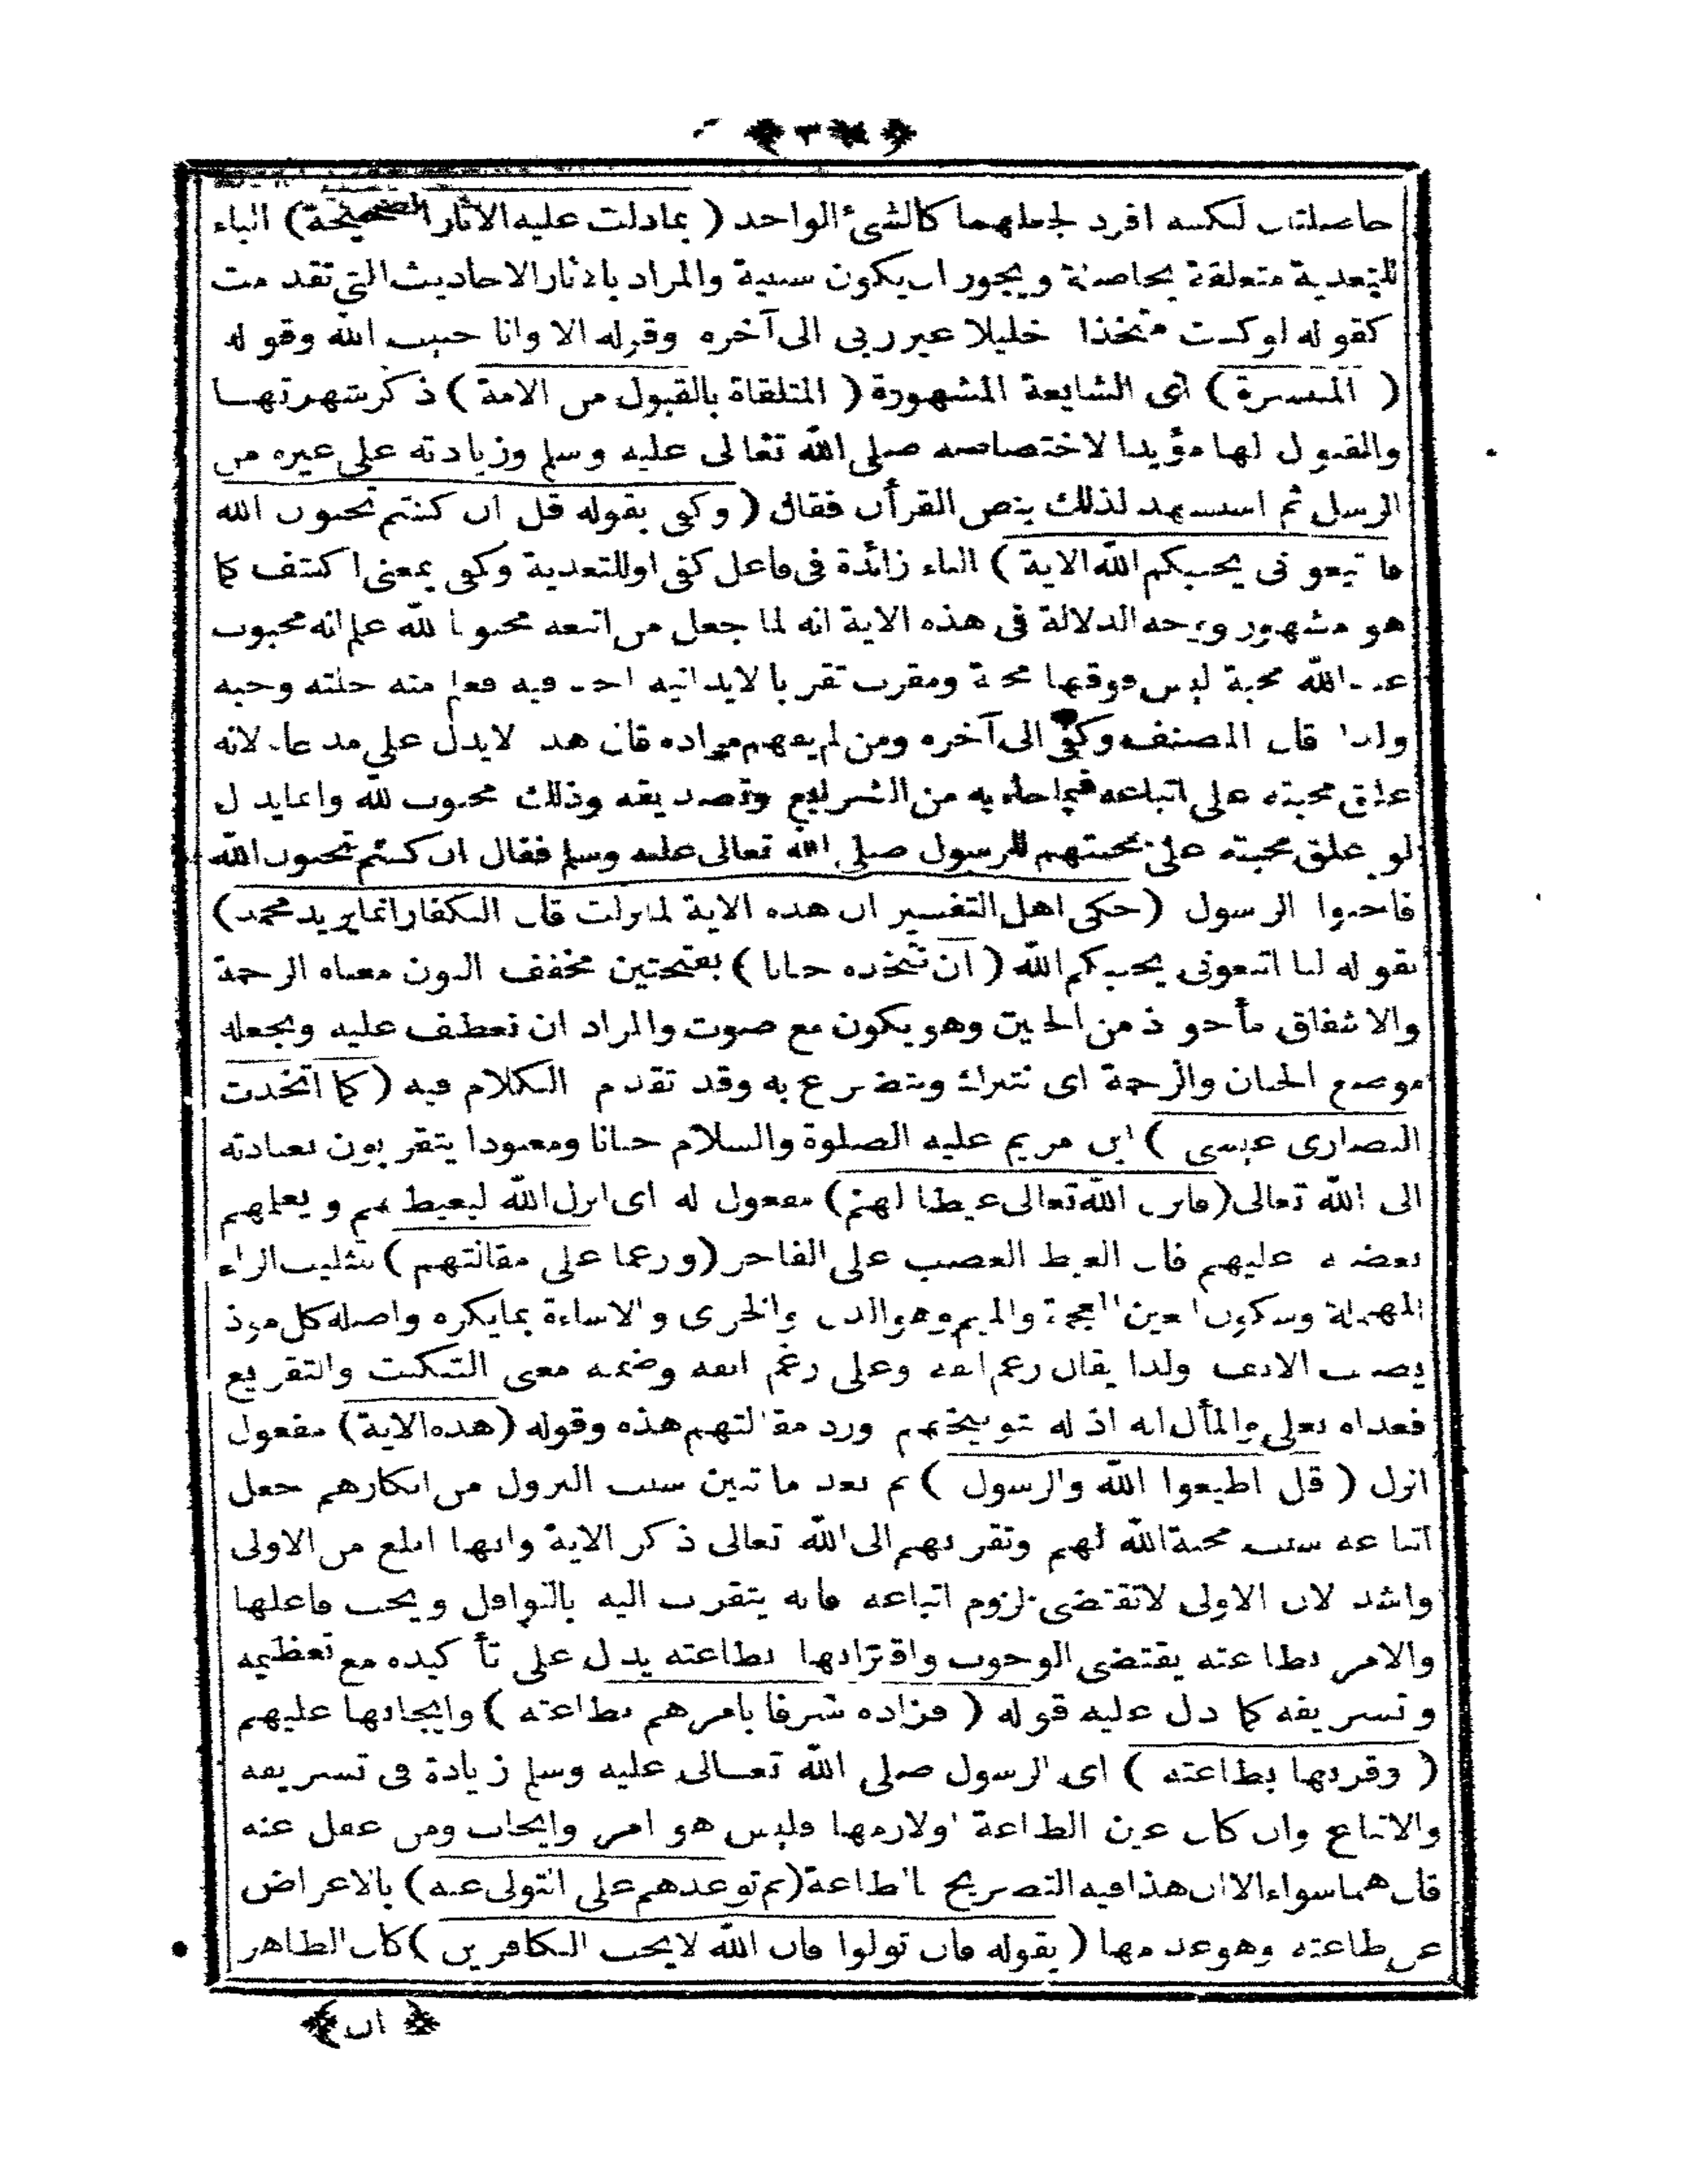 حاصلتان لكنه افرد لجعلهما كالشيء الواحد ( بمادلت عليه الآثار الصحيحة ) الباء
للتعدية متعلقة بحاصلة ويجوز ان يكون سببية والمراد بالاثار الاحاديث التي تقدمت
كقوله لو كنت متخذا خليلا غير ربي الى آخره وقوله الا وانا حبيب الله وقوله
( المنتشرة ) اى الشايعة المشهورة ( المتلقاة بالقبول من الامة ) ذكر شهرتها
والقبول لها مؤيدا لاختصاصه صلى الله تعالى عليه وسلم وزيادته على غيره من
الرسل ثم استشهد لذلك بنص القرأن فقال ( وكفى بقوله قل ان كنتم تحبون الله
فاتبعونى يحببكم الله الاية ) الباء زائدة فى فاعل كفى اوللتعدية وكفى بمعنى اكتف كما
هو مشهور ووجه الدلالة فى هذه الاية انه لما جعل من اتبعه محبوبا لله علم انه محبوب
عند الله محبة ليس فوقها محبة ومقرب تقربا لايدانيه احد فيه فعلم منه خلته وحبه
ولذا قال المصنف وكفى الى آخره ومن لم يفهم مراده قال هذا لايدل على مدعاه لانه
علق محبته على اتباعه فيما جاء به من الشرايع وتصديقه وذلك محبوب لله وانمايدل
لو علق محبته على محبتهم للرسول صلى الله تعالى عليه وسلم فقال ان كنتم تحبون الله
فاحبوا الرسول (حكى اهل التفسير ان هذه الاية لمانزلت قال الكفار انمايريد محمد)
بقوله لنا اتبعونى يحببكم الله ( ان نتخذه حنانا ) بفتحتين مخفف النون معناه الرحمة
والاشفاق مأخوذ من الحنين وهو يكون مع صوت والمراد ان نعطف عليه ونجعله
موضع الحنان والرحمة اى نتبرك ونتضرع به وقد تقدم الكلام فيه ( كما اتخذت
النصارى عيسى ) ابن مريم عليه الصلوة والسلام حنانا ومعبودا يتقربون بعبادته
الى الله تعالى (فانزل الله تعالى غيظا لهم) مفعول له اى انزل الله ليغيظهم ويعلمهم
بغضه عليهم فان الغيظ الغضب على الفاجر (ورغما على مقالتهم) بتثليث الراء
المهملة وسكون الغين المعجمة والميم وهو الذل والخزى والاساءة بمايكره واصله كل موذ
يصيب الانف ولذا يقال رغم انفه وعلى رغم انفه وضمنه معنى التبكيت والتقريع
فعداه بعلى والمأل انه اذله بتوبيخهم ورد مقالتهم هذه وقوله (هذه الاية) مفعول
انزل ( قل اطيعوا الله والرسول ) ثم بعد ما تبين سبب النزول من انكارهم جعل
اتباعه سبب محبة الله لهم وتقربهم الى الله تعالى ذكر الاية وانها ابلغ من الاولى
واشد لان الاولى لاتقتضى لزوم اتباعه فانه يتقرب اليه بالنوافل ويحب فاعلها
والامر بطاعته يقتضى الوجوب واقترانها بطاعته يدل على تأكيده مع تعظيمه
وتشريفه كما دل عليه قوله ( فزاده شرفا بامرهم بطاعته ) وايجابها عليهم
( وقرنها بطاعته ) اى الرسول صلى الله تعالى عليه وسلم زيادة فى تشريفه
والاتباع وان كان عين الطاعة اولازمها فليس هو امر وايجاب ومن غفل عنه
قال هما سواء الا ان هذا فيه التصريح بالطاعة (ثم توعدهم على التولى عنه) بالاعراض
عن طاعته وهو عدمها ( بقوله فان تولوا فان الله لايحب الكافرين ) كان الظاهر
ان